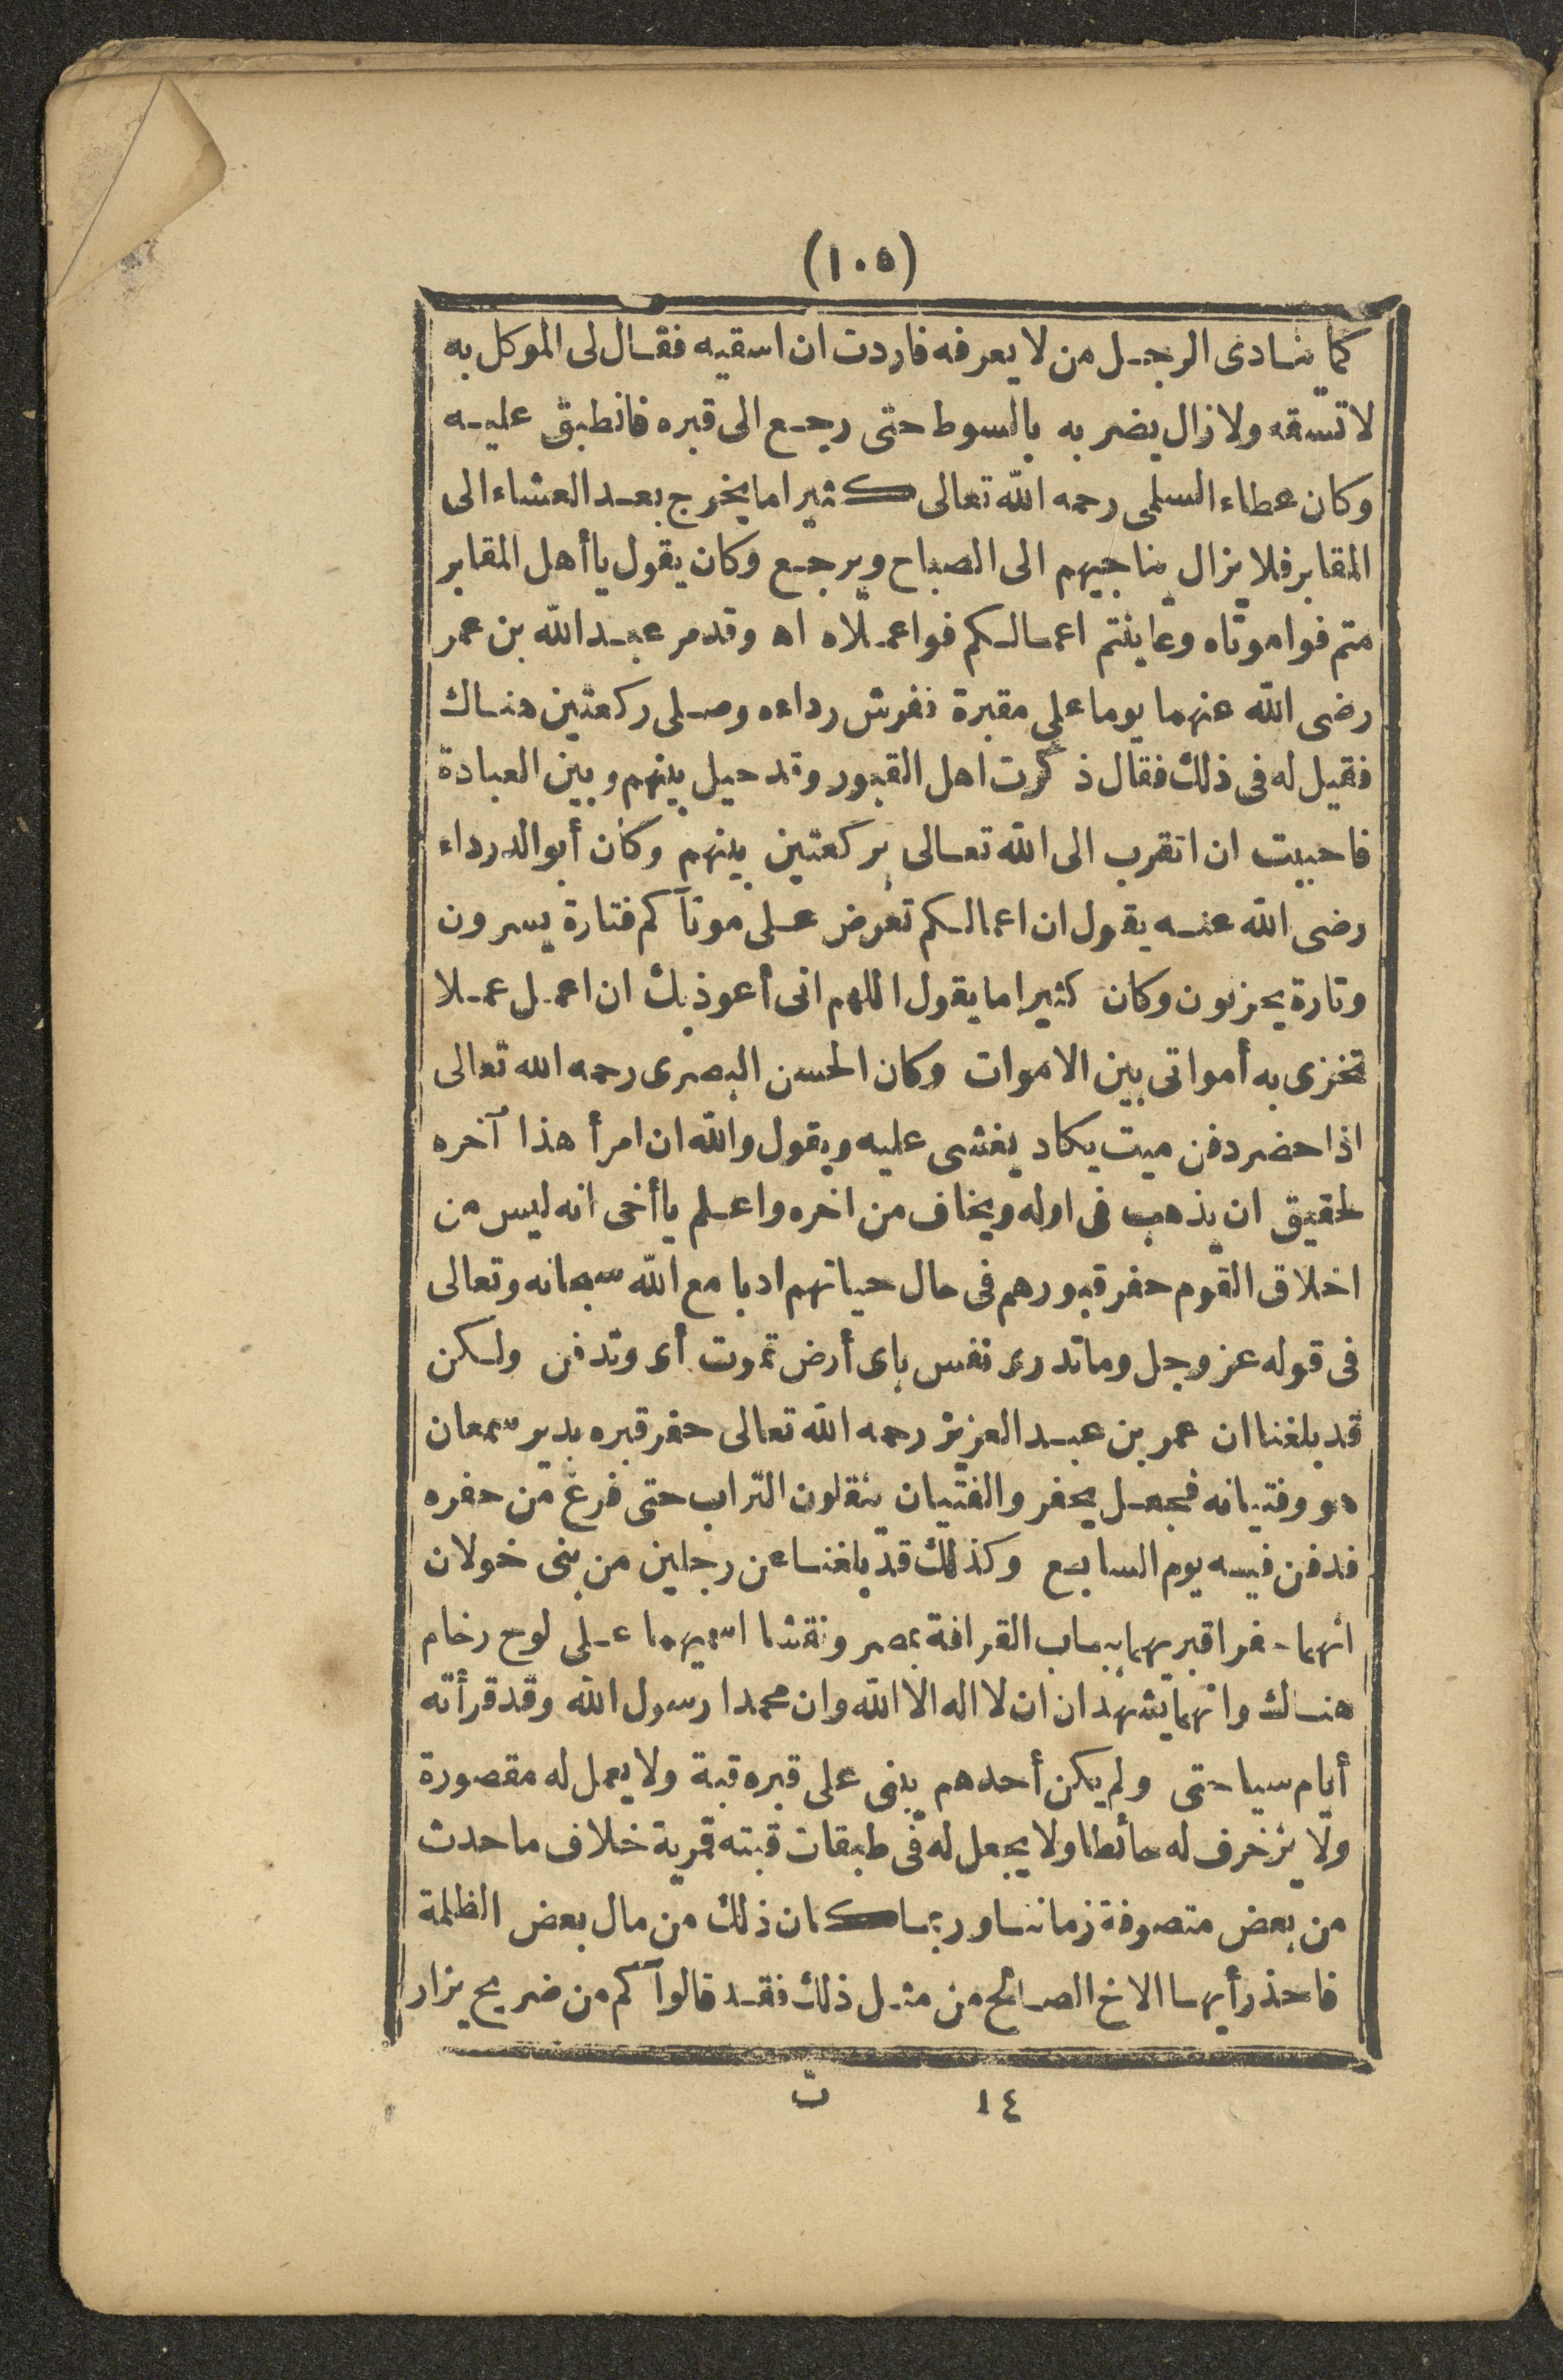 (١٠٥)
كما ينادى الرجل من لا يعرفه فاردت ان اسقيه فقال لى الموكل به
لا تسقه ولا زال يضربه بالسوط حتى رجع الى قبره فانطبق عليه
وكان عطاء السلمى رحمه الله تعالى كثيرا ما يخرج بعد العشاء الى
المقابر فلا يزال يناجيهم الى الصباح ويرجع وكان يقول ياأهل المقابر
متم فواموتاه وعاينتم اعمالكم فواعملاه اه وقدمر عبد الله بن عمر
رضى الله عنهما يوما على مقبرة ففرش رداءه وصلى ركعتين هناك
فقيل له فى ذلك فقال ذكرت اهل القبور وقد حيل بينهم وبين العبادة
فاحببت ان اتقرب الى الله تعالى بركعتين بينهم وكان أبو الدرداء
رضى الله عنه يقول ان اعمالكم تعرض على موتآكم فتارة يسرون
وتارة يحزنون وكان كثيرا ما يقول اللهم انى أعوذ بك ان اعمل عملا
تخزى به أمواتى بين الاموات وكان الحسن البصرى رحمه الله تعالى
اذا حضر دفن ميت يكاد يغشى عليه ويقول والله ان امرأ هذا آخره
لحقيق ان يذهب فى اوله ويخاف من اخره واعلم ياأخى انه ليس من
اخلاق القوم حفر قبورهم فى حال حياتهم ادبا مع الله سبحانه وتعالى
فى قوله عز وجل وما تدرى نفس باى أرض تموت أى وتدفن ولكن
قد بلغنا ان عمر بن عبد العزيز رحمه الله تعالى حفر قبره بدير سمعان
هو وفتيانه فجعل يحفر والفتيان ينقلون التراب حتى فرغ من حفره
فدفن فيه يوم السابع وكذلك قد بلغنا عن رجلين من بنى خولان
انهما حفرا قبريهما بباب القرافة بمصر ونقشا اسميهما على لوح رخام
هناك وانهما يشهدان ان لا اله الا الله وان محمدا رسول الله وقد قرأته
أيام سياحتى ولم يكن أحدهم يبنى على قبره قبة ولا يعمل له مقصورة
ولا يزخرف له حائطا ولا يجعل له فى طبقات قبته قمرية خلاف ما حدث
من بعض متصوفة زماننا وربما كان ذلك من مال بعض الظلمة
فاحذر أيها الاخ الصالح من مثل ذلك فقد قالوا كم من ضريح يزار
١٤ ت